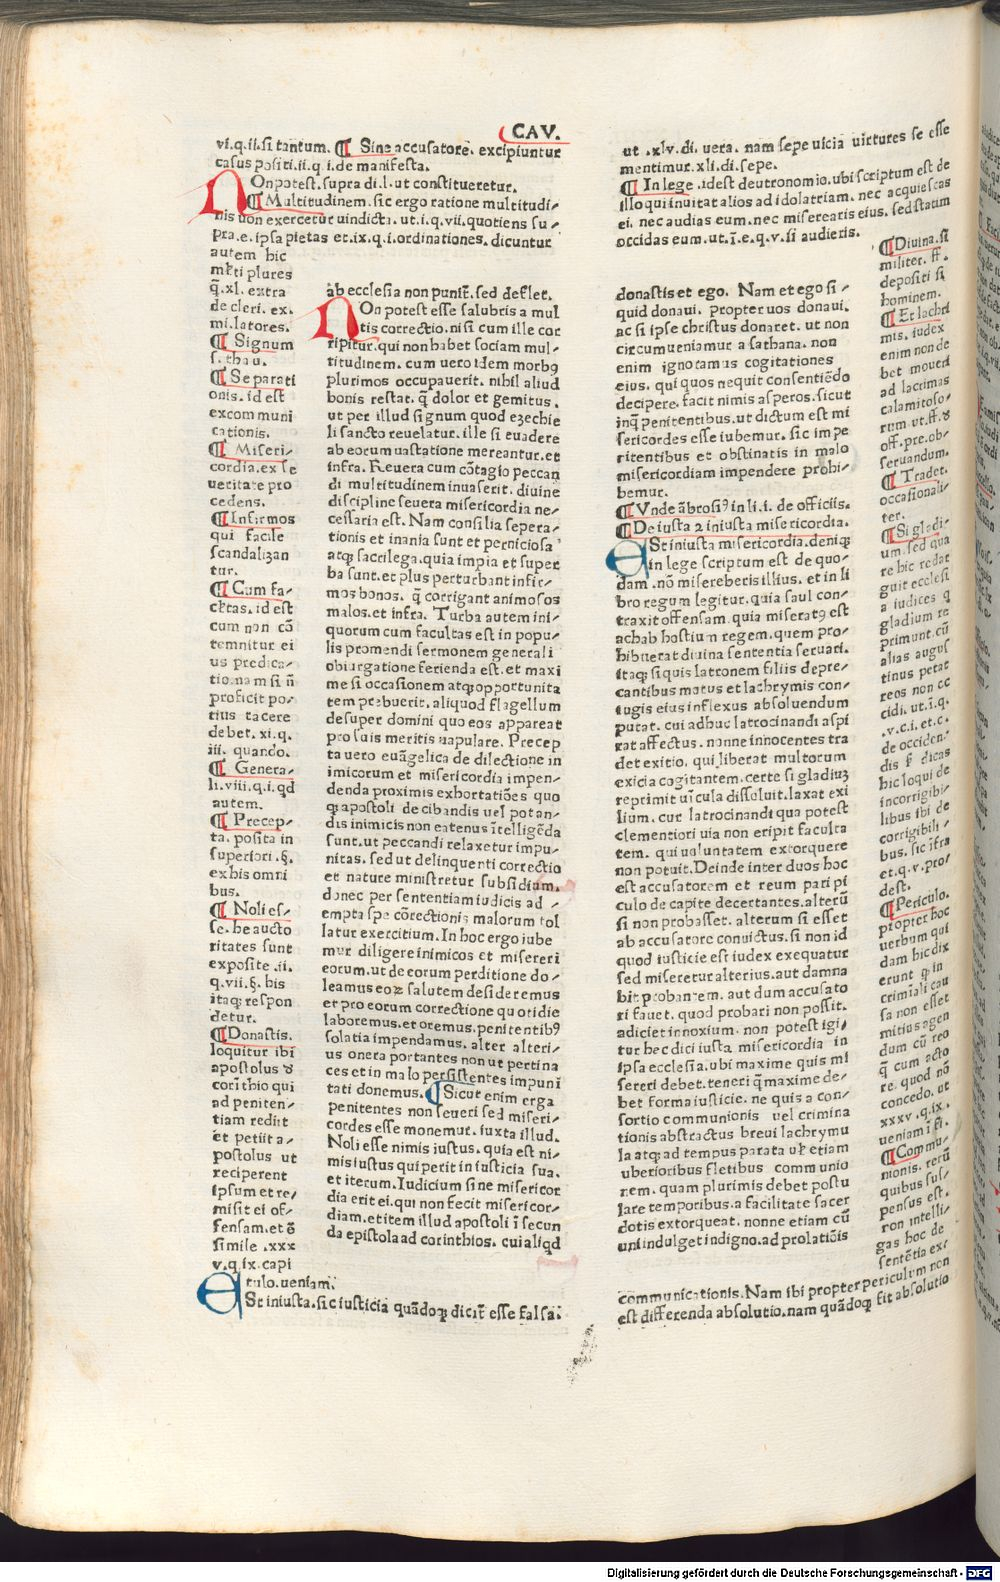 CAV.
vi.q.ii.si tantum. ¶ Sine accusatore. excipiuntur
casus positi.ii.q.i.de manifesta.
NOn potest. supra di.l.ut constitueretur.
¶ Multitudinem. sic ergo ratione multitudi⸗
nis non exercetur uindicta. ut.i.q.vii.quotiens su⸗
pra.e.ipsa pietas et.ix.q.i.ordinationes. dicuntur
autem hic
mĺti plures
q̃.xl. extra
de cleri. ex.
mi.latores.
¶ Signum
s. thau.
¶ Separati
onis. id est
excommuni
cationis.
¶ Miseri⸗
cordia.ex se
ueritate pro
cedens.
¶ Infirmos
qui facile
scandalizan
tur.
¶ Cum fa⸗
cĺtas. id est
cum non cõ
temnitur ei
us predica⸗
tio.nam si ñ
proficit po⸗
tius tacere
debet. xi.q.
iii. quando.
¶ Genera⸗
li.viii.q.i.qd
autem.
¶ Precep⸗
ta. posita in
superiori .§.
ex his omni
bus.
¶ Noli es⸗
se. he aucto
ritates sunt
exposite .ii.
q.vii.§. his
itaq; respon
detur.
¶ Donastis.
loquitur ibi
apostolus ꝛ
corithio qui
ad peniten⸗
tiam rediit
et petiit a⸗
postolus ut
reciperent
ipsum et re⸗
misit ei of⸗
fensam.et ẽ
simile .xxx
v.q.ix.capi
tulo.ueniam.
ESt iniusta.sic iusticia quãdoq; dicit̃ esse falsa.
ab ecclesia non punit̃. sed deflet.
NOn potest esse salubris a mul
tis correctio.nisi cum ille cor
ripitur.qui non habet sociam mul⸗
titudinem. cum uero idem morbꝰ
plurimos occupauerit. nihil aliud
bonis restat. q̃ dolor et gemitus.
ut per illud signum quod ezechie
li sancto reuelatur. ille si euadere
ab eorum uastatione mereantur.et
infra. Reuera cum cõtagio peccan
di multitudinem inuaserit. diuine
discipline seuera misericordia ne⸗
cessaria est. Nam consilia sepera⸗
tionis et inania sunt et perniciosa
atq; sacrilega.quia impia et super
ba sunt.et plus perturbant infir⸗
mos bonos. q̃ corrigant animosos
malos.et infra. Turba autem ini⸗
quorum cum facultas est in popu⸗
lis promendi sermonem generali
obiurgatione ferienda est.et maxi
me si occasionem atq; opportunita
tem prebuerit. aliquod flagellum
desuper domini quo eos appareat
pro suis meritis uapulare. Precep
ta uero euãgelica de dilectione in
imicorum et misericordia impen⸗
denda proximis exhortatiões quo
q; apostoli de cibandis uel potan⸗
dis inimicis non eatenus ĩtelligẽda
sunt.ut peccandi relaxetur impu⸗
nitas. sed ut delinquenti correctio
et nature ministretur subsidium.
donec per sententiam iudicis ad ⸗
empta spe cõrectionis malorum tol
latur exercitium. In hoc ergo iube
mur diligere inimicos et misereri
eorum.ut de eorum perditione do⸗
leamus eoꝝ salutem desideremus
et pro eorum correctione quotidie
laboremus.et oremus.penitentibꝰ
solatia impendamus. alter alteri⸗
us onera portantes non ut pertina
ces et in malo persistentes impuni
tati donemus. ¶ Sicut enim erga
penitentes non seueri sed miseri⸗
cordes esse monemur. iuxta illud.
Noli esse nimis iustus. quia est ni⸗
mis iustus qui perit in iusticia sua.
et iterum. Iudicium sine misericor
dia erit ei. qui non fecit misericor⸗
diam.et item illud apostoli ĩ secun
da epistola ad corinthios. cui aliqd
ut .xlv.di. uera. nam sepe uicia uirtures se esse
mentimur.xli.di.sepe.
¶ In lege. idest deutronomio.ubi scriptum est de
illo qui inuitat alios ad idolatriam. nec acquiescas
ei. nec audias eum. nec miserearis eius. sed statim
occidas eum.ut.ĩ.e.q.v.si audieris.
donastis et ego. Nam et ego si⸗
quid donaui. propter uos donaui.
ac si ipse christus donaret. ut non
circumueniamur a sathana. non
enim ignoramus cogitationes
eius. qui quos nequit consentiẽdo
decipere. facit nimis asperos. sicut
inq̃ penitentibus.ut dictum est mi
sericordes esse iubemur. sic impe
ritentibus et obstinatis in malo
misericordiam impendere prohi⸗
bemur.
¶ Vnde ãbrosiꝰ in li.i. de officiis.
¶ De iusta ⁊ iniusta misericordia.
ESt iniusta misericordia. deniq;
in lege scriptum est de quo⸗
dam .nõ misereberis illius. et in li
bro regum legitur. quia saul con⸗
traxit offensam. quia miseratꝰ est
achab hostium regem. quem pro⸗
hibuerat diuina sententia seruari.
Itaq; si quis latronem filiis depre⸗
cantibus motus et lachrymis con⸗
iugis eius inflexus absoluendum
putat. cui adhuc latrocinandi aspi
rat affectus. nonne innocentes tra
det exitio. qui liberat multorum
exicia cogitantem. certe si gladiuʒ
reprimit uĩcula dissoluit. laxat exi
lium. cur latrocinandi qua potest
clementiori uia non eripit faculta
tem. qui uoluntatem extorquere
non potuit. Deinde inter duos hoc
est accusatorem et reum pari pi
culo de capite decertantes. alterũ
si non probasset. alterum si esset
ab accusatore conuictus. si non id
quod iusticie est iudex exequatur
sed miseretur alterius. aut damna
bit probantem. aut dum accusato
ri fauet. quod probari non possit.
adiciet innoxium. non potest igi⸗
tur hec dici iusta misericordia in
ipsa ecclesia.ubi maxime quis mi
sereri debet. teneri q̃ maxime de⸗
bet forma iusticie. ne quis a con⸗
sortio communionis uel crimina
tionis abstractus breui lachrymu
la atq; ad tempus parata uĺ etiam
uberioribus fletibus communio
nem. quam plurimis debet postu
lare temporibus.a facilitate sacer
dotis extorqueat. nonne etiam cũ
uni indulget indigno. ad prolatiõis
¶ Diuina. si
militer. ff.
depositi si
hominem.
¶ Et lachri
mis. iudex
enim non de
bet moueri
ad lacrimas
calamitoso⸗
rum.ut.ff.ꝛ
off.pre.ob⸗
seruandum.
¶ Tradet.
occasionali⸗
ter.
¶ Si gladi⸗
um. sed qua
re hic redar
guit ecclesi
a iudices q
gladium re
primunt.cũ
alias augus
tinus petat
reos non oc
cidi. ut.i.q.
.v.c.i. et.c.
de occiden⸗
dis ꝑ dicas
hic loqui de
incorrigibi⸗
libus ibi de
corrigibili⸗
bus. sic ĩfra
et.q.v.pro⸗
dest.
¶ Periculo.
propter hoc
uerbum qui
dam hic dix
erunt q; in
criminali cau
sa non esset
mitius agen
dum cũ reo
q̃ cum acto
re. quod nõ
concedo. ut
xxxv.q.ix.
ueniam ĩ fi.
¶ Commu⸗
nionis. rerũ
quibus sus⸗
pensus est.
ron intelli⸗
gas hoc de
sentẽtia exc
communicationis. Nam ibi propter periculum non
est differenda absolutio.nam quãdoq; fit absolutio
Digitalisierung gefördert durch die Deutsche Forschungsgemeinschaft - DFG